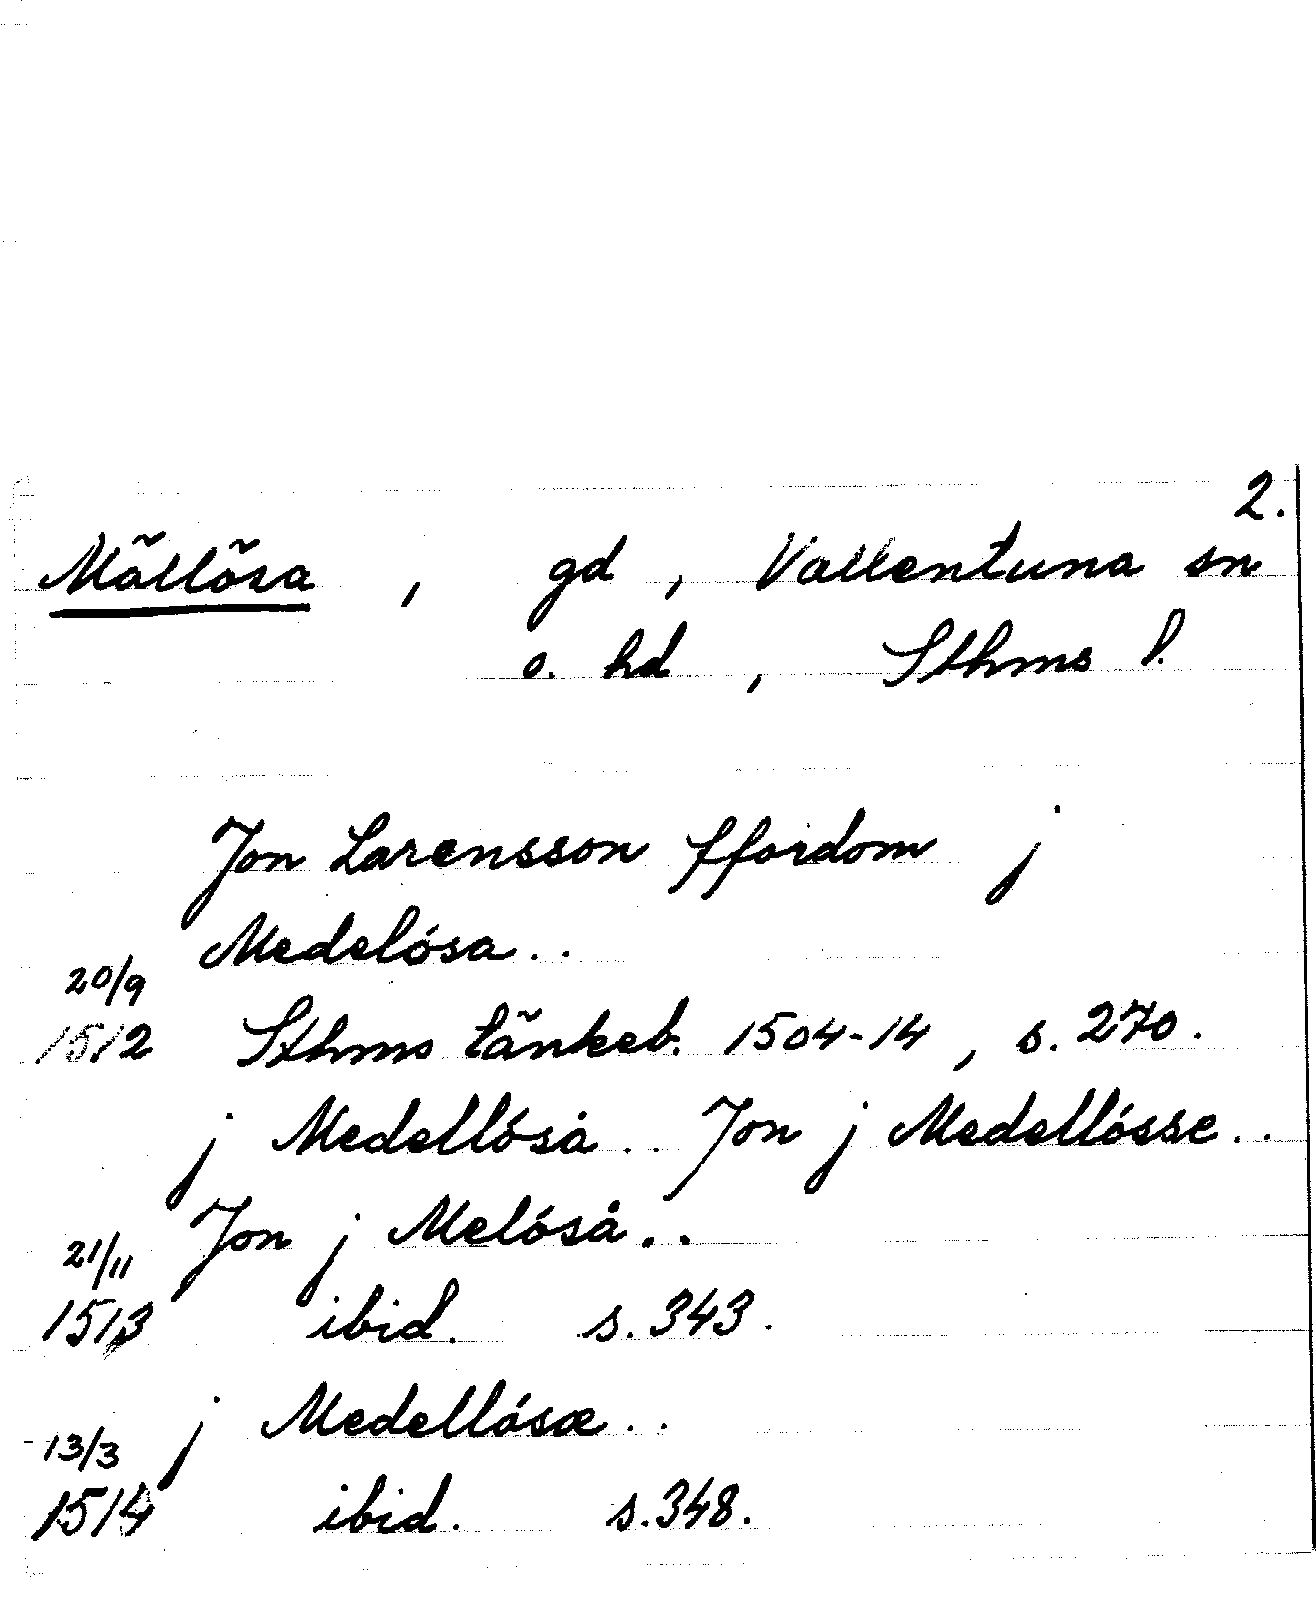 2.
Mällösa , gd , Vallentuna sn
o. hd , Sthms l.
Jon Larensson ffordom j
Medelósa..
20/9
1512 Sthms tänkeb. 1504-14 , s. 270.
j Medellóså.. Jon j Medellósse..
Jon j Melóså..
21/11
1513 ibid. s. 343.
j Medellósæ..
13/3
1514 ibid. s. 348.